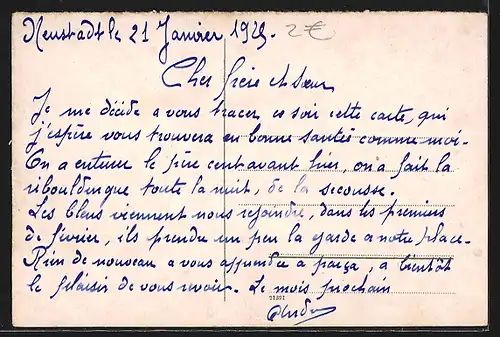 Neustadt le 21 Janvier 1925.
2€
Cher frère et sœur
Je me décide a vous tracer ce soir cette carte, qui
j'espère vous trouvera en bonne santés comme moi-
On a enterrer le père cent avant hier, on a fait la
ribouldingue toute la nuit, de la secousse.
Les bleus viennent nous rejoindre, dans les premiers
de février, ils prendre un peu la garde a notre place-
Rien de nouveau a vous apprendre a parça, a bientôt
le plaisir de vous revoir. Le mois prochain
21391